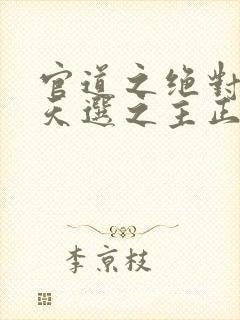 官道之绝對
天選之主正
李京枝